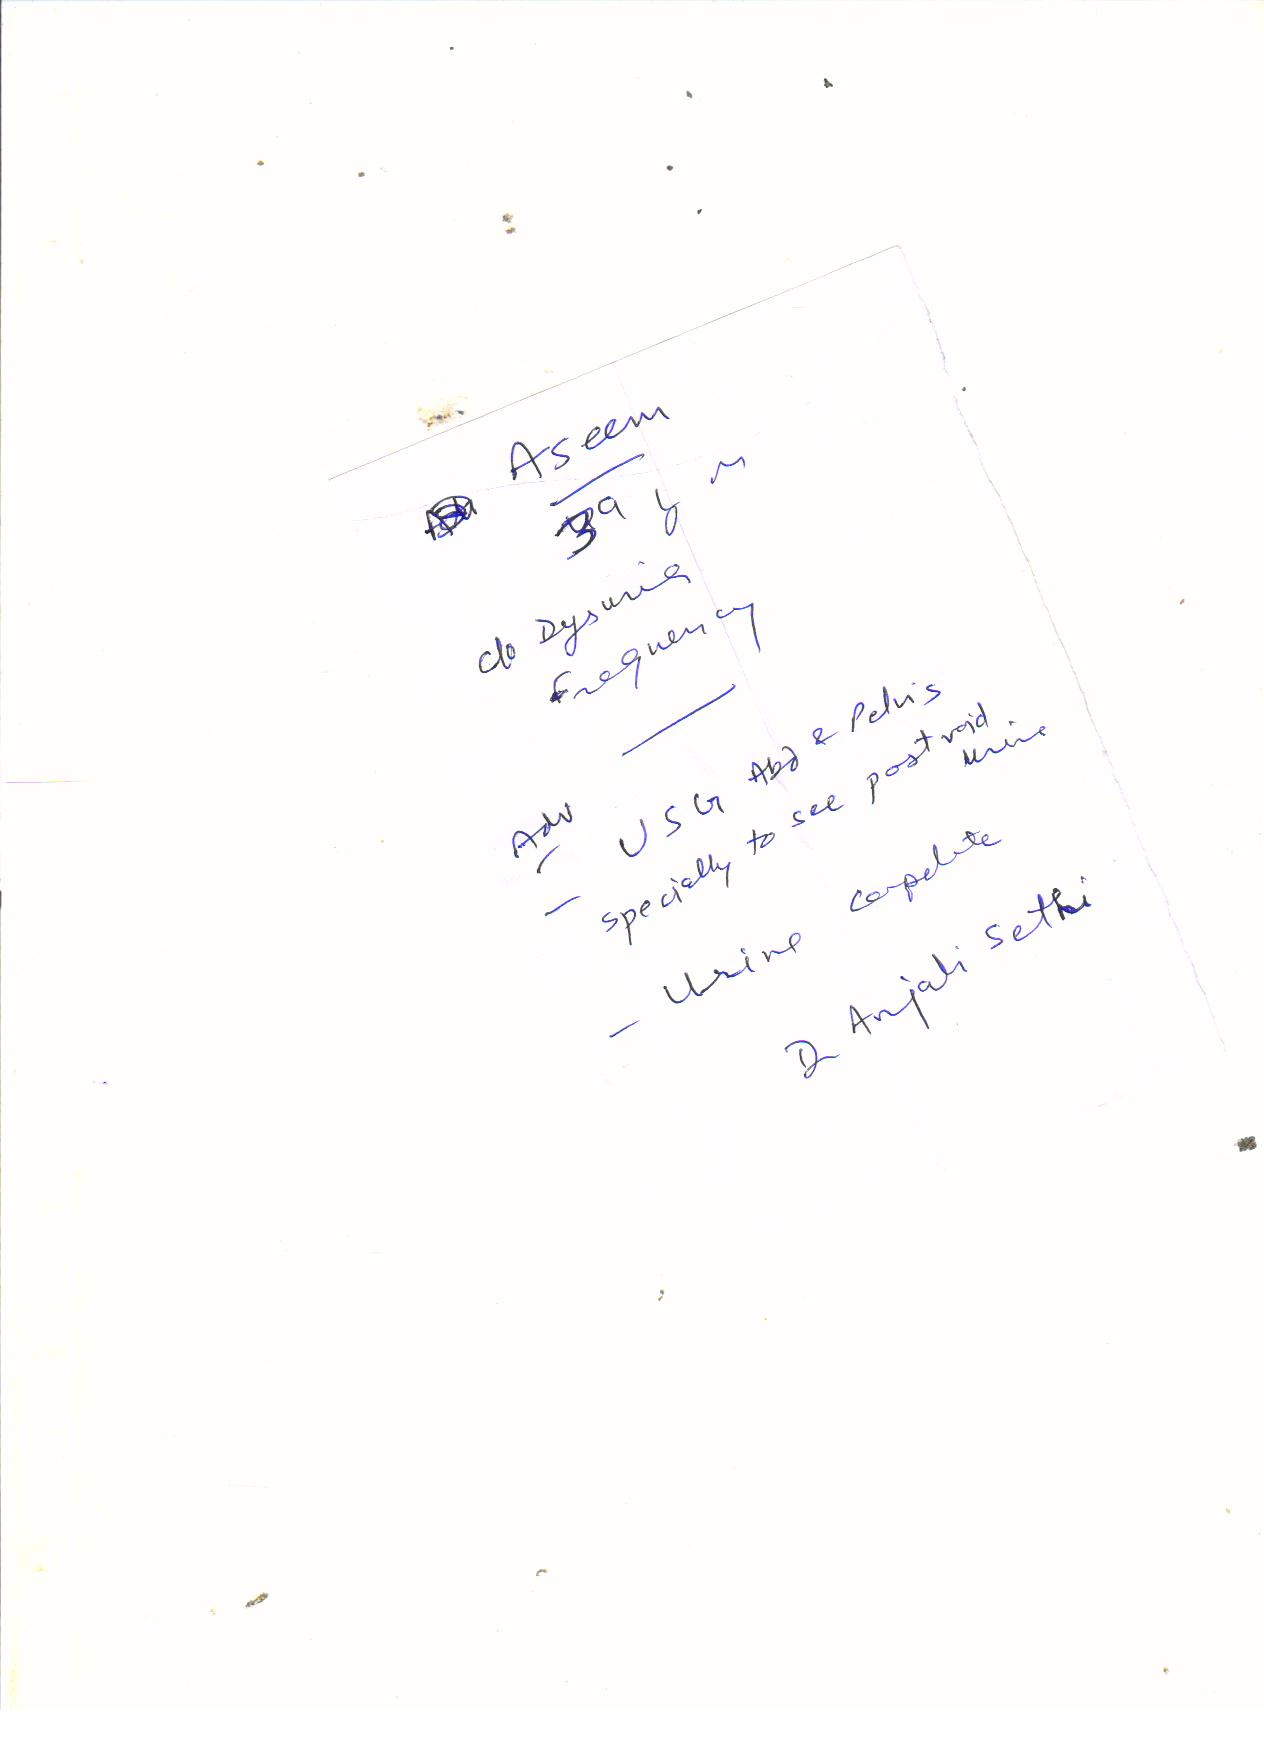 Aseem
39 y M
c/o Dysuria
Frequency
Adv
- USG Abd & Pelvis
specially to see post void
urine
- Urine complete
Dr Anjali Sethi